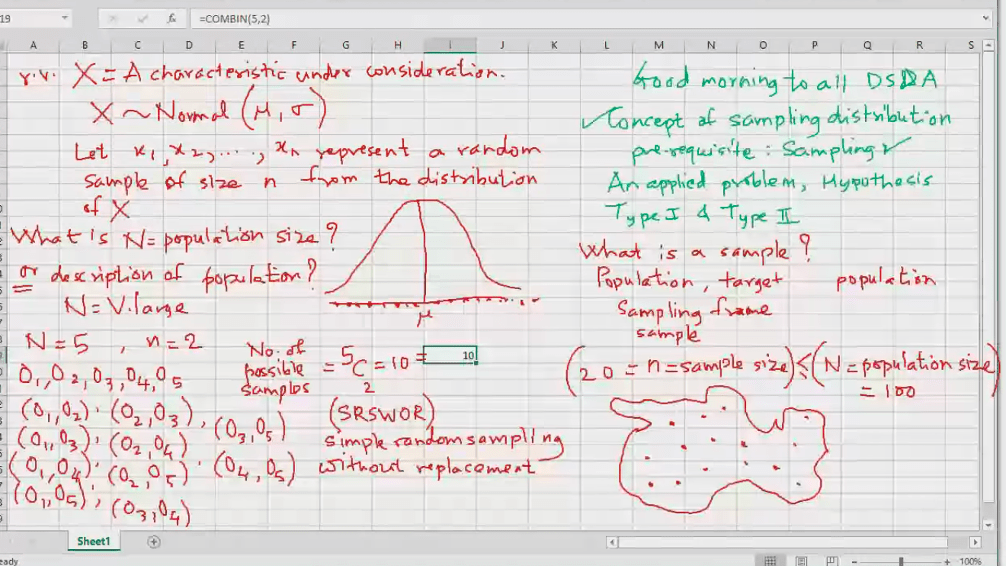 19
fx =COMBIN(5,2)
A B C D E F G H I J K L M N O P Q R S
r.v. X = A characteristic under consideration.
X ~ Normal (μ, σ)
Let x1, x2, ...., xn represent a random
sample of size n from the distribution
of X
What is N = population size?
or description of population?
N = V.large
μ
N = 5 , n = 2
O1, O2, O3, O4, O5
(O1, O2), (O2, O3), (O3, O5)
(O1, O3), (O2, O4)
(O1, O4), (O2, O5), (O4, O5)
(O1, O5), (O3, O4)
No. of
possible
samples
= 5C2 = 10 = 10
(SRSWOR)
simple random sampling
without replacement
Good morning to all DSDA
✓Concept of sampling distribution
pre-requisite : Sampling ✓
An applied problem, Hypothesis
Type I & Type II
What is a sample?
Population, target population
Sampling frame
sample
(20 = n = sample size) ≤ (N = population size)
= 100
Sheet1
eady
100%